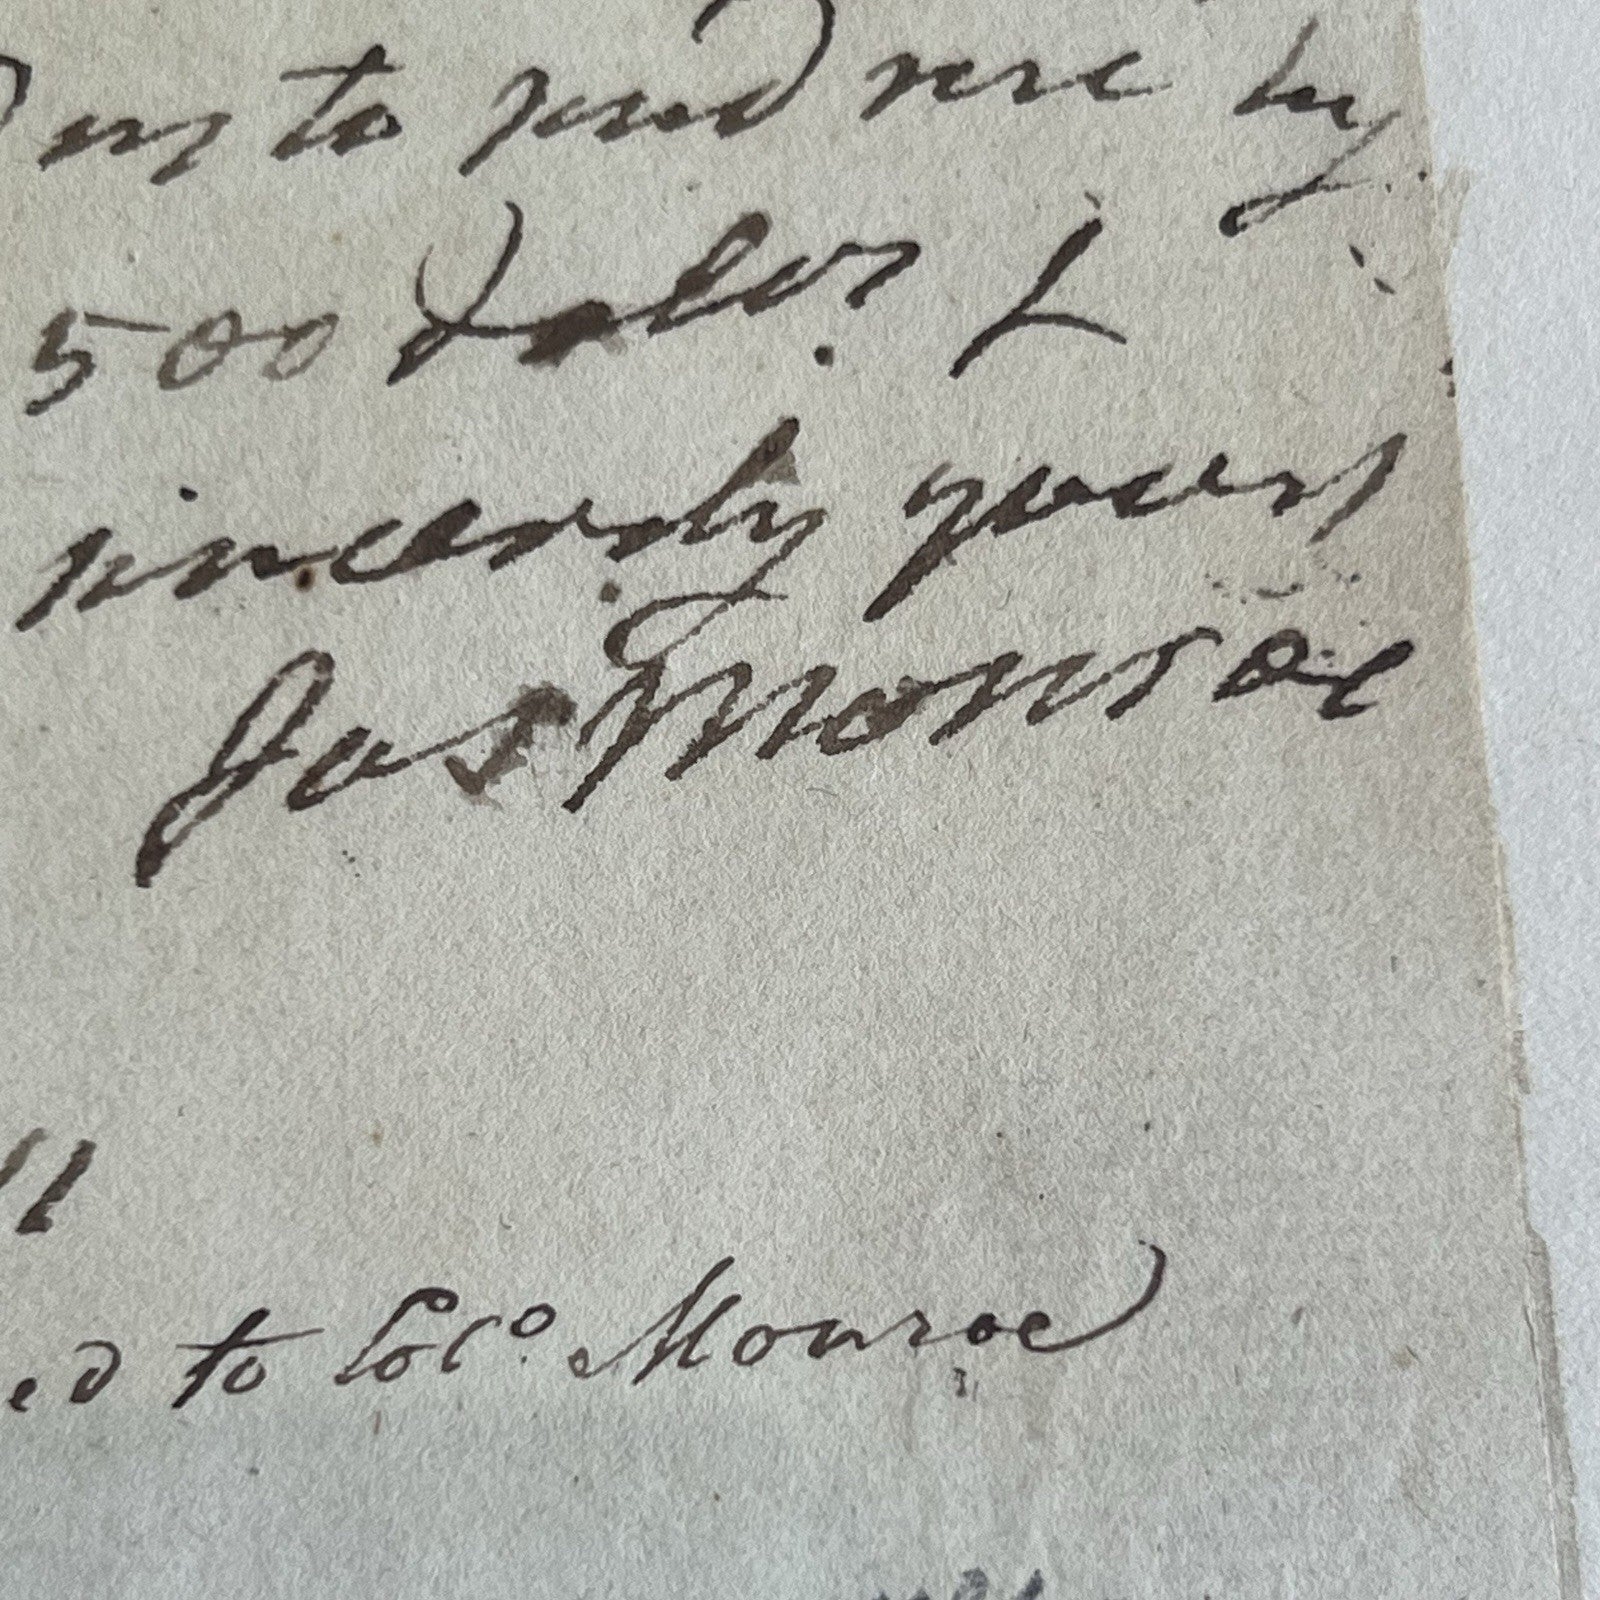 us to send me by
500 dolrs. &
sincerely yours
Jas Monroe
11
ed to Colo. Monroe